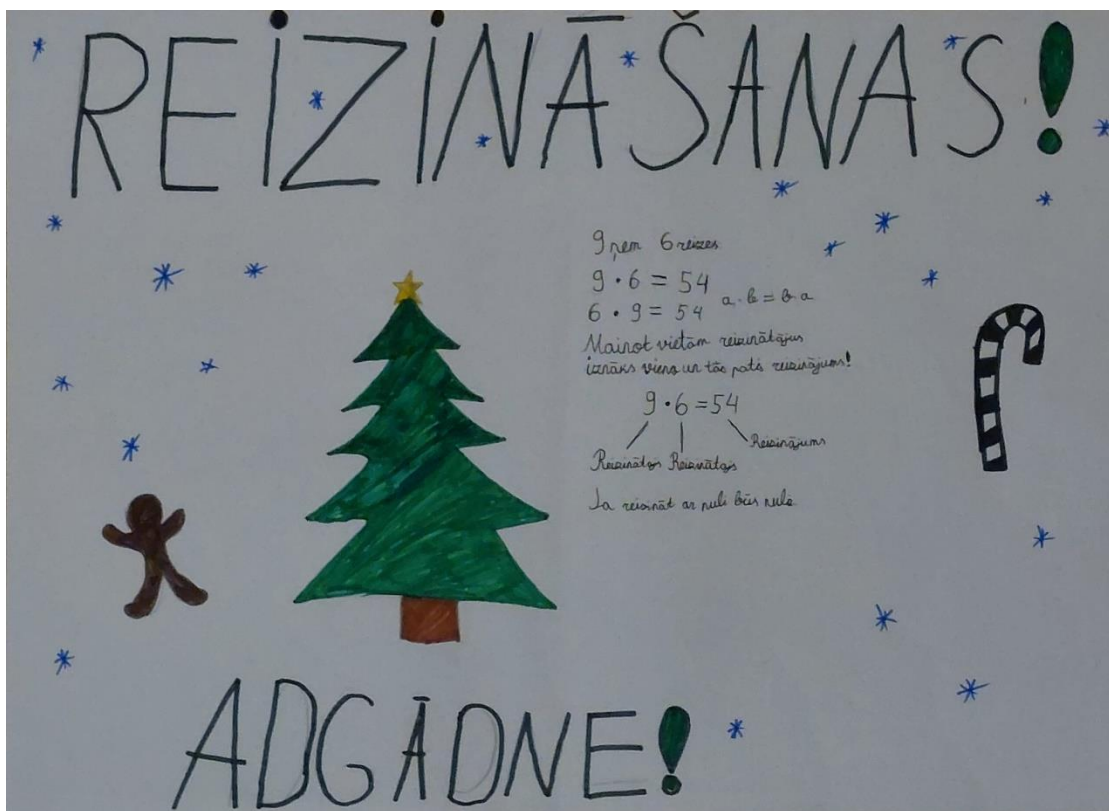 REiZiNĀŠANAS!
9 ņem 6 reizes
9 · 6 = 54
6 · 9 = 54 a · b = b · a
Mainot vietām reizinātājus
iznāks viens un tās pats reizinājums!
9 · 6 = 54
Reizinājums
Reizinātājs Reizinātājs
Ja reizināt ar nuli būs nule
ADGĀDNE!